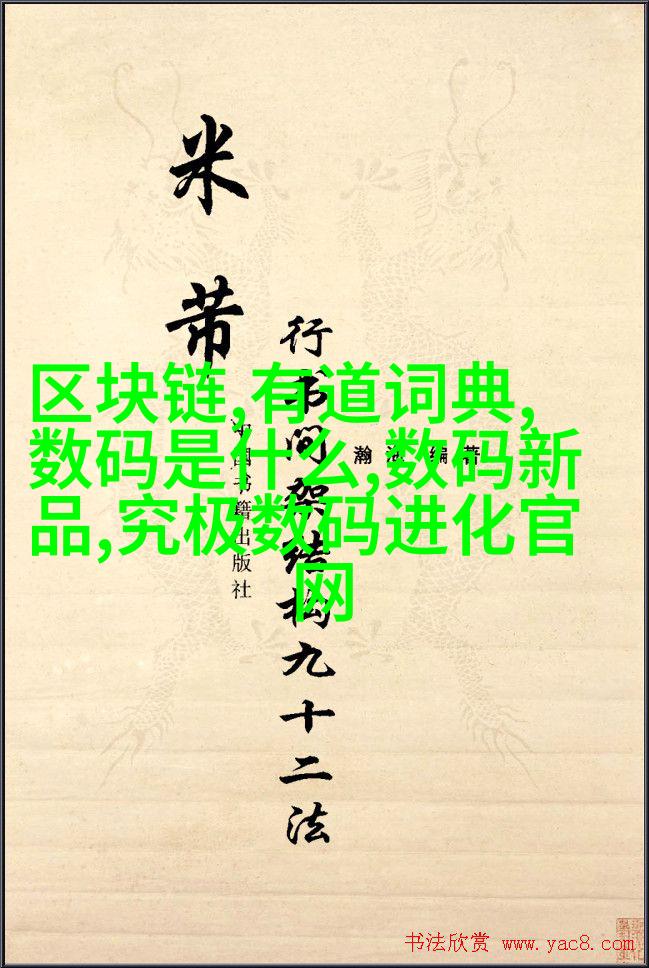 米
芾
行书间架结构九十二法
瀚 编著
中国书籍出版社
区块链,有道词典,
数码是什么,数码新
品,究极数码进化官
网
书法欣赏 www.yac8.com